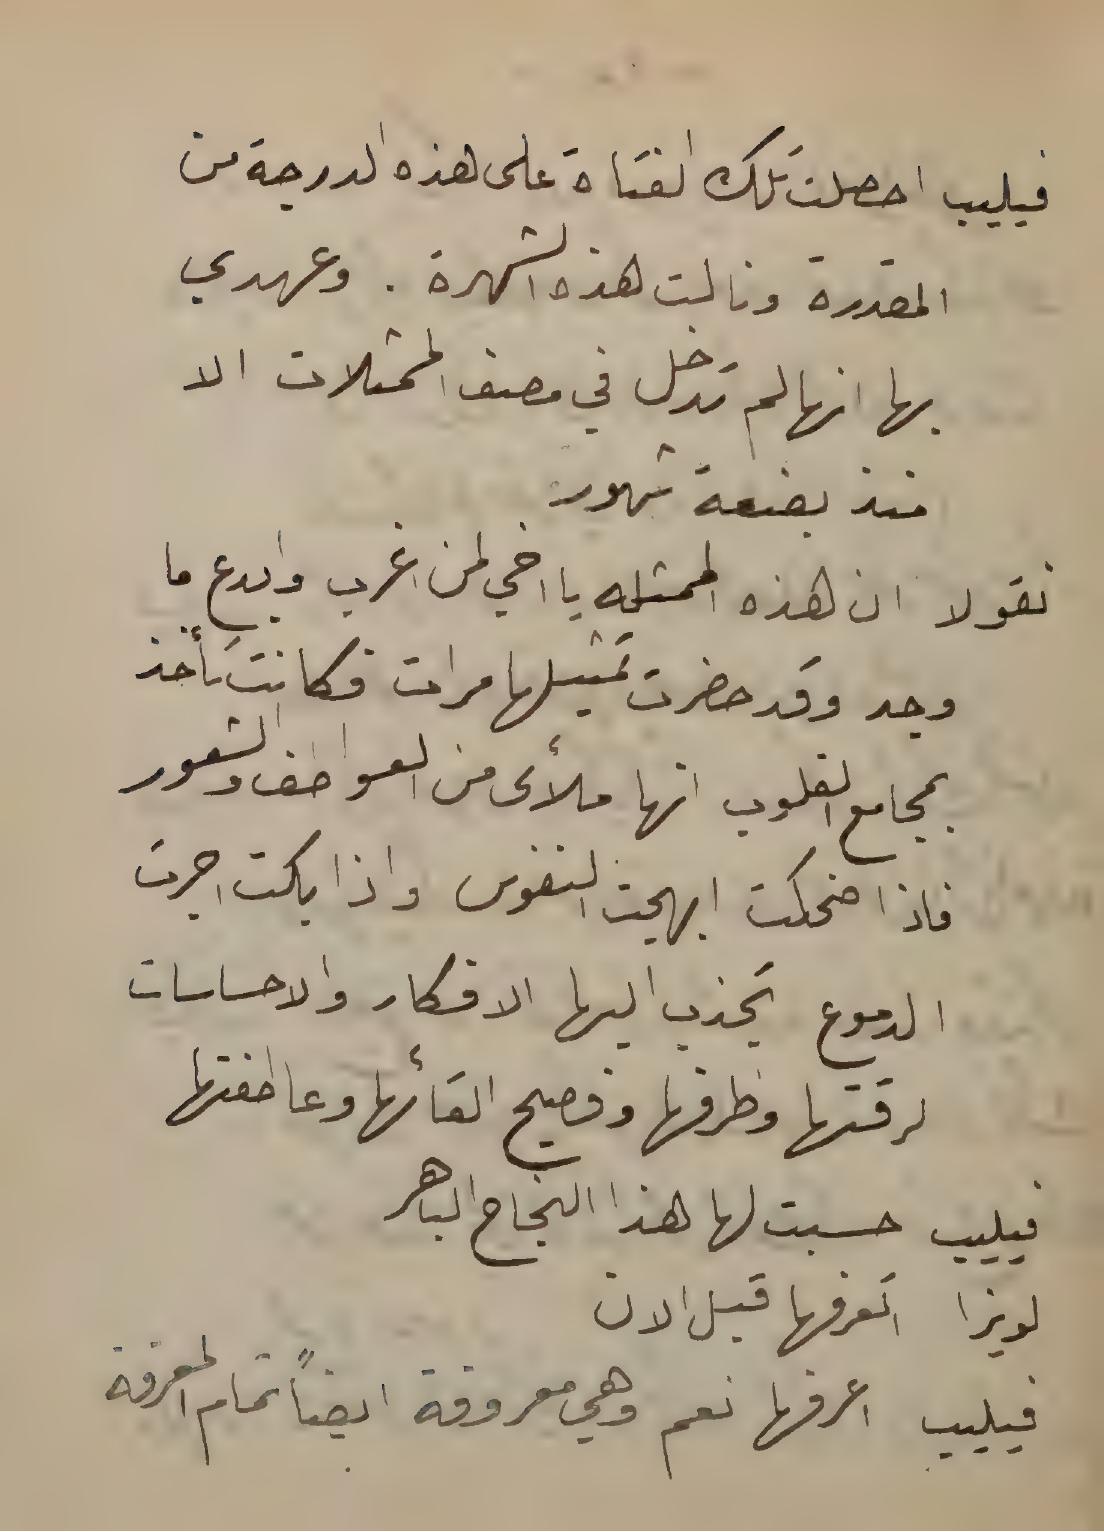 فيليب احصلت تلك الفتاة على هذه الدرجة من
المقدرة ونالت هذه الشهرة . وعهدي
بها انها لم تدخل في مصف الممثلات الا
منذ بضعة شهور
نقولا ان هذه الممثله يا اخي لمن اغرب وابدع ما
وجد وقد حضرت تمثيلها مرات فكانت تأخذ
بمجامع القلوب انها ملأى من العواطف والشعور
فاذا ضحكت ابهجت النفوس واذا بكت اجرت
الدموع تجذب اليها الافكار والاحساسات
لرقتها وظرفها وفصيح القائها وعاطفتها
فيليب حسبت لها هذا النجاح الباهر
لويزا اتعرفها قبل الان
فيليب اعرفها نعم وهي معروفة ايضاً تمام المعرفة